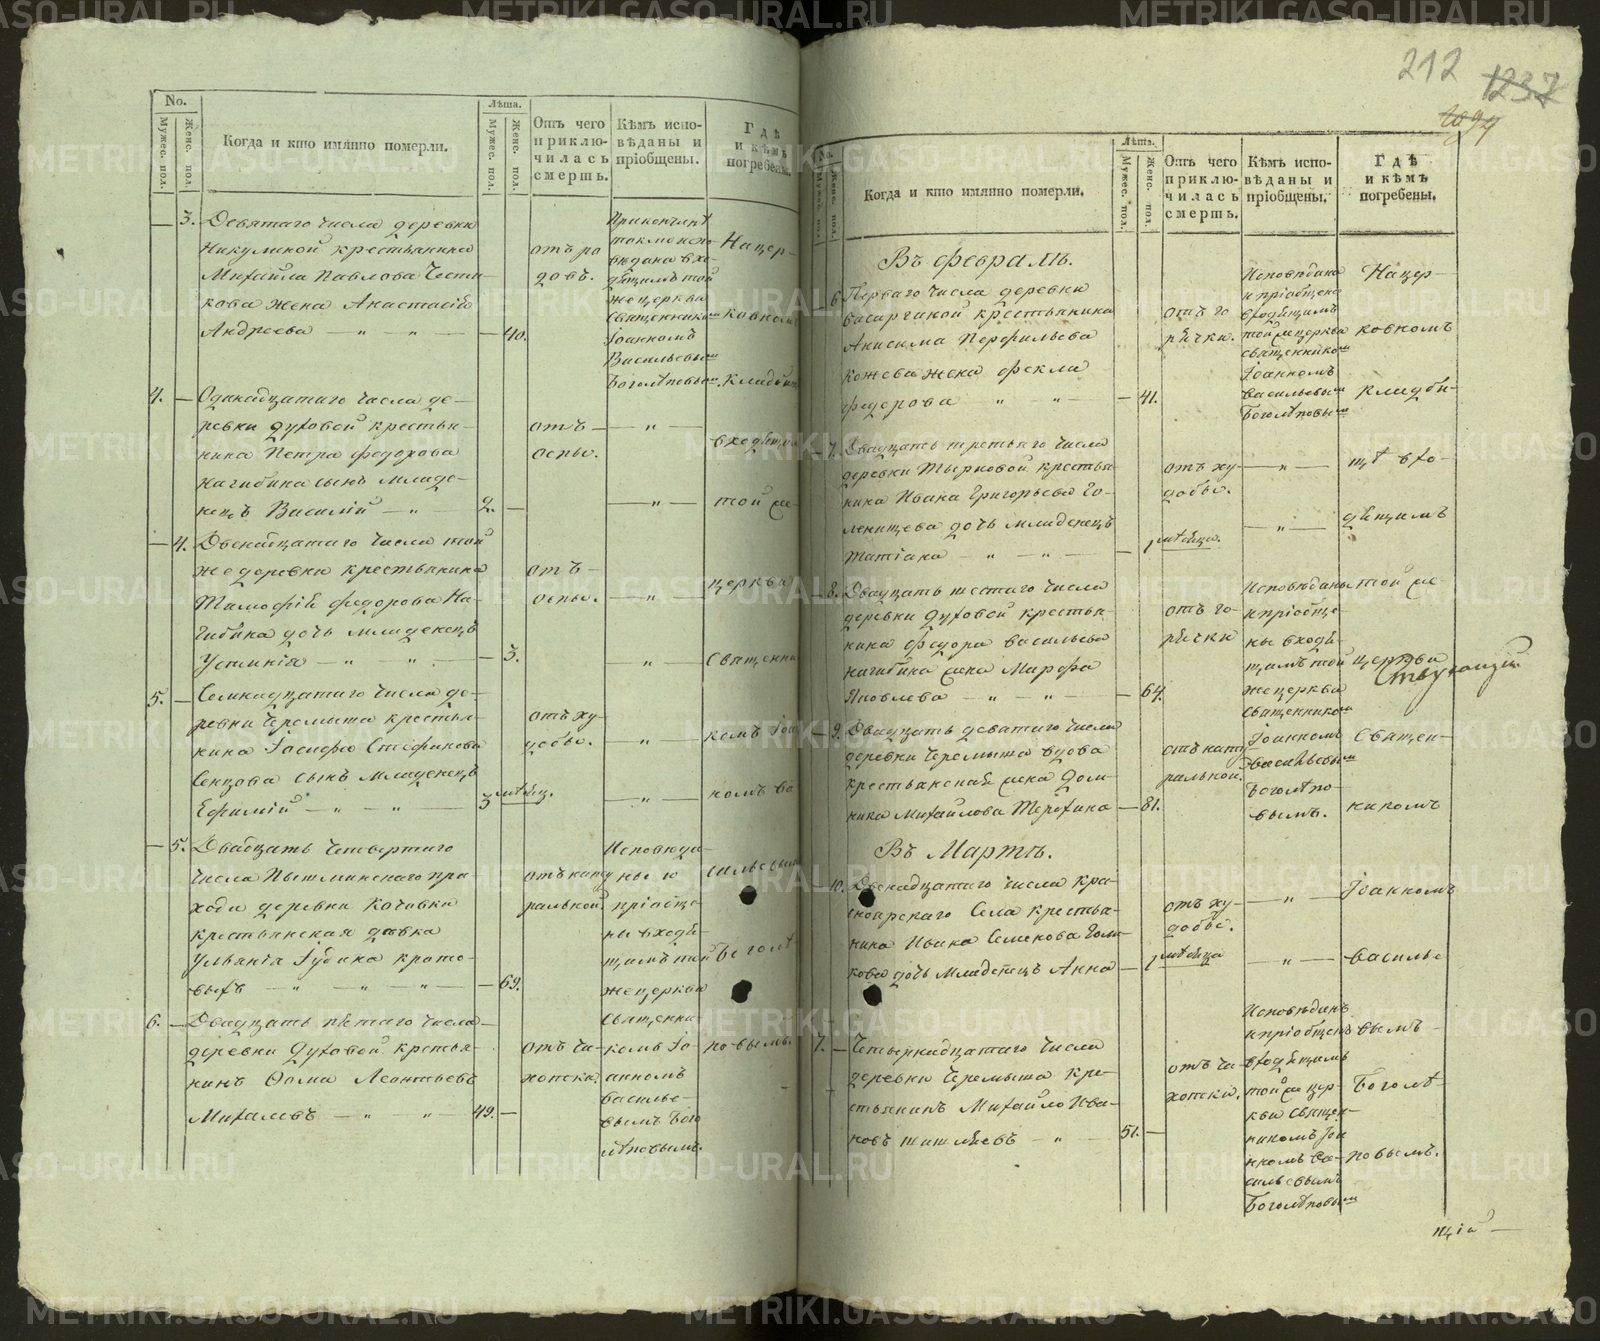 212 1237
No.
Мужес. пол.
Женс. пол.
Когда и кто имянно померли.
Лѣта.
Мужес. пол.
Женс. пол.
Отъ чего приключилась смерть.
Кѣмъ исповѣданы и пріобщены.
Гдѣ и кѣмъ погребены.
— 3. Девятаго числа деревни
Никулиной крестьянина
Михайла Павлова
жена Анастасія
Андреева — „ — „ — — 40.
отъ родовъ.
же церкви
священникомъ
Іоанномъ
Васильевымъ
Боголѣповымъ.
На цер-
ковномъ
кладби
входящимъ
той же
церкви
священни
комъ Іоа
номъ Ва
сильевым
Боголѣ-
повымъ.
4. — Одинадцатаго числа де-
ревни Духовой крестья-
нина Петра Федорова
Нагибина сынъ младе-
нецъ Василій — „ — 2. —
отъ —
оспы.
— „ —
— „ —
— 4. Двенадцатаго числа той
же деревни крестьянина
Тимофѣя Федорова На-
гибина дочь младенецъ
Устинія — „ — „ — — 3.
отъ —
оспы.
— „ —
„
5. — Семнадцатаго числа де-
ревни Черемыша крестья-
нина Іосифа Стефанова
Сенцова сынъ младенецъ
Ефимій — „ — „ — 3 мѣсяц.
отъ ху-
добы.
— „ —
— „ —
— 5. Двадцать четвертаго
числа Пышминскаго при-
хода деревни Кочовки
крестьянская дѣвка
Ульянія
— „ — „ — „ — — 69.
отъ нату
ральной
ны и
пріобще-
ны входя-
щимъ той
же церкви
священни-
комъ Іо-
анномъ
Василье-
вымъ Бого
лѣповымъ.
6. — Двадцать пятаго числа
деревни Духовой крестья-
нинъ Фома Леонтьевъ
Михалевъ — „ — „ — 49. —
отъ ча-
хотки.
No.
Мужес. пол.
Женс. пол.
Когда и кто имянно померли.
Лѣта.
Мужес. пол.
Женс. пол.
Отъ чего приключилась смерть.
Кѣмъ исповѣданы и пріобщены.
Гдѣ и кѣмъ погребены.
Въ февралѣ.
6. Перваго числа деревни
Басаргиной крестьянина
Анисима Перфильева
Кожева жена Фекла
Федорова „ „ — 41.
отъ го-
рячки.
Исповѣдана
и пріобщена
входящимъ
той же церкви
священникомъ
Іоанномъ
Васильевымъ
Боголѣповымъ
На цер-
ковномъ
кладби-
щѣ вхо-
дящимъ
той же
церкви
священ-
никомъ
Іоанномъ
Василье-
вымъ
Боголѣ-
повымъ.
— 7. Двадцать третьяго числа
деревни Тырковой крестья-
нина Ивана Григорьева Го-
ленищева дочь младенецъ
Татіана — „ — „ — — 1 мѣсяца.
отъ ху-
добы.
— „ —
— „ —
— 8. Двадцать шестаго числа
деревни Духовой крестья-
нина Федора Васильева
Нагибина жена Марфа
Яковлева — „ — „ — — 64.
отъ го-
рячки
Исповѣданы
и пріобще-
ны входя-
щимъ той
же церкви
священникомъ
Іоанномъ
Васильевымъ
Боголѣпо-
вымъ.
— 9. Двадцать девятаго числа
деревни Черемыша вдова
крестьянская жена Дом-
ника Михайлова Терехина — 81.
отъ нату-
ральной.
Въ Мартѣ.
10. Двенадцатаго числа Кра-
сноярскаго Села крестья-
нина Ивана Семенова Голи-
кова дочь младенецъ Анна — 1 мѣсяца
отъ ху-
добы.
— „ —
— „ —
7. — Четырнадцатаго числа
деревни Черемыша кре-
стьянинъ Михайло Ива-
новъ — „ 51. —
отъ ча-
хотки.
Исповѣданъ
и пріобщенъ
входящимъ
той же цер-
кви священ-
никомъ Іоа
нномъ Ва-
сильевымъ
Боголѣповымъ